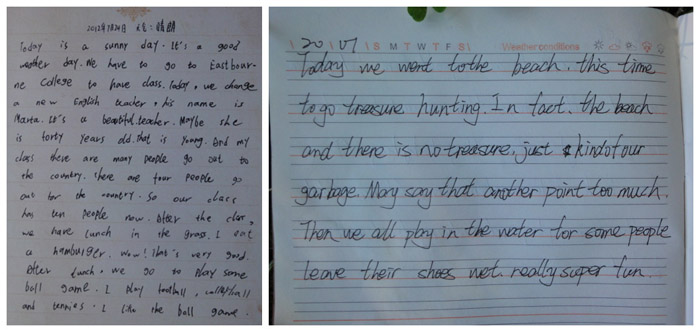 2012年7月24日 天气:晴朗
Today is a sunny day. It's a good
weather day. We have to go to Eastbour-
ne College to have class. Today, we change
a new English teacher, his name is
Marta. It's a beautiful teacher. Maybe she
is forty years old. that is young. And my
class there are many people go out to
the country. there are four people go
out for the country. So our class
has ten people now. After the class,
we have lunch in the grass. I eat
a hamburger. Wow! That's very good.
After lunch, we go to play some
ball game. I play football, volleyball
and tennies. I like the ball game.
20 1 07 S M T W T F S Weather conditions
Today we went to the beach. this time
to go treasure hunting. In fact. the beach
and there is no treasure. just kind of our
garbage. May say that another point too much.
Then we all play in the water for some people
leave their shoes wet. really super fun.